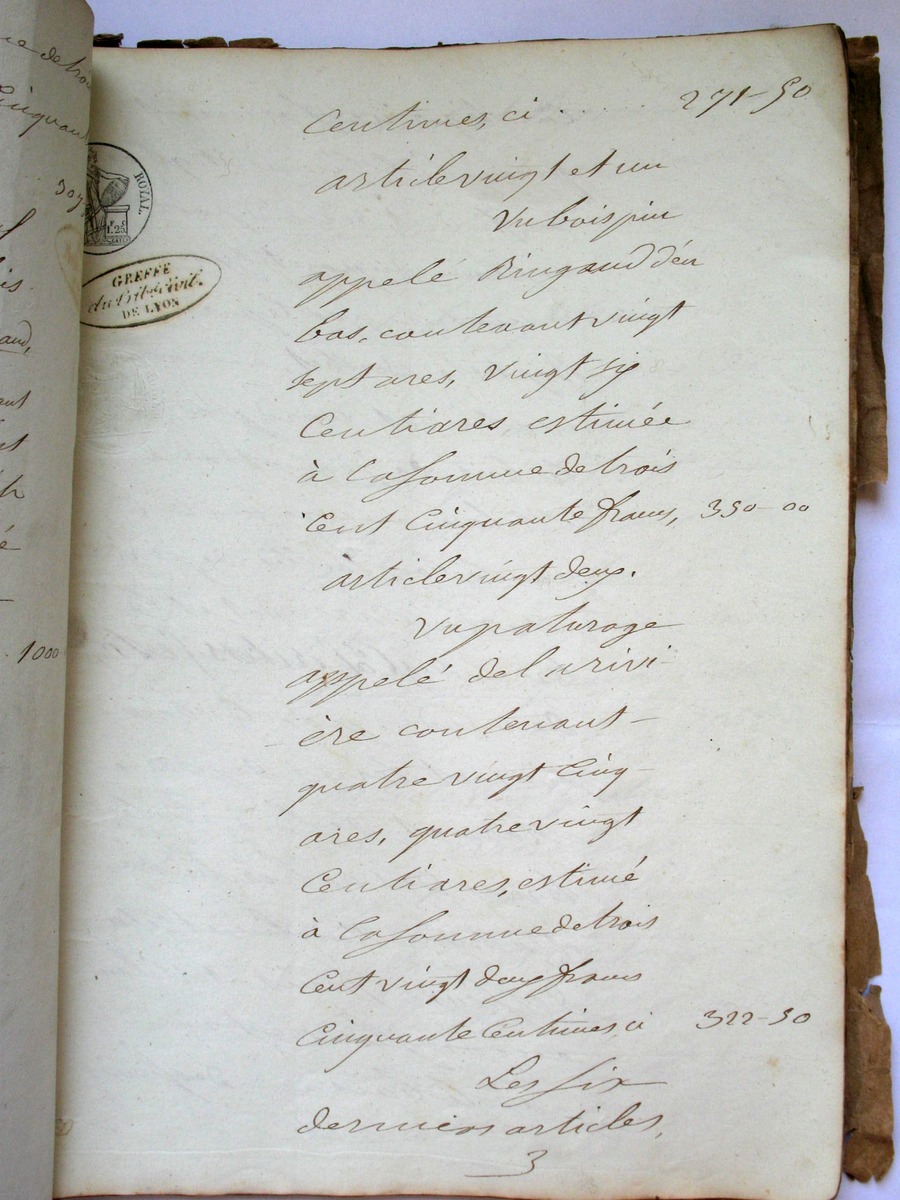 centimes, ci ..... 271-50
article vingt et un
un bois pin
appelé Ringaud d'en
bas, contenant vingt
sept ares, vingt six
Centiares estimée
à la somme de trois
cent cinquante francs, 350-00
article vingt deux.
un paturage
appelé de la rivi-
ère contenant-
quatre vingt cinq-
ares, quatre vingt
Centiares, estimé
à la somme de trois
cent vingt deux francs
cinquante centimes, ci 322-50
Les six
derniers articles,
3
ROYAL.
1.25
GREFFE
du Trib. Civil.
DE LYON
307
1000